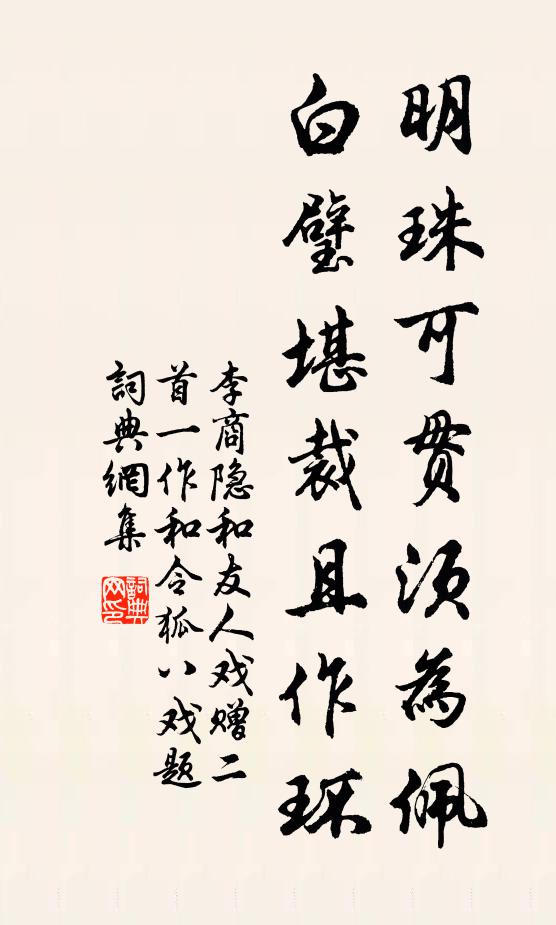 明珠可贯须為佩
白璧堪裁且作环
李商隐和友人戏赠二
首一作和令狐八戏题
詞典網集
詞典
网印